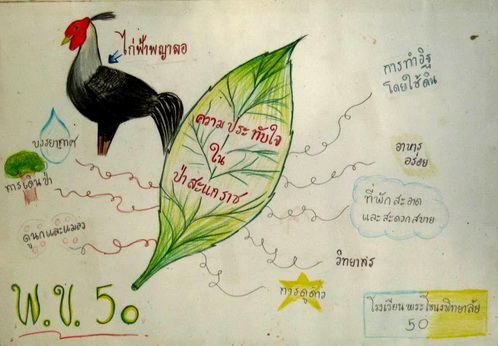 ไก่ฟ้าพญาลอ
ความประทับใจ
ใน
ป่าสะแกราช
การทำอิฐ
โดยใช้ดิน
อาหาร
อร่อย
ที่พัก สะอาด
และสะดวกสบาย
วิทยากร
การดูดาว
บรรยากาศ
การเดินป่า
ดูนกและแมลง
พ.ข. 50
โรงเรียน พระโขนงพิทยาลัย
50